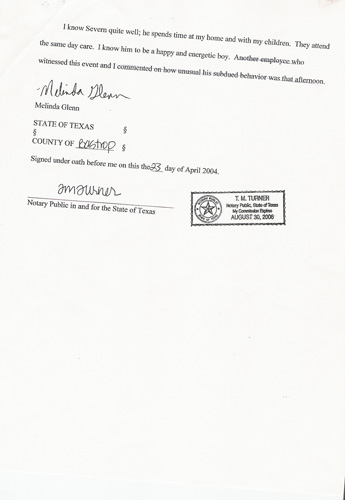 I know Severn quite well; he spends time at my home and with my children. They attend
the same day care. I know him to be a happy and energetic boy. Another employee who
witnessed this event and I commented on how unusual his subdued behavior was that afternoon.
Melinda Glenn
Melinda Glenn
STATE OF TEXAS §
§
COUNTY OF Bastrop §
Signed under oath before me on this the 23 day of April 2004.
TM Turner
Notary Public in and for the State of Texas
T. M. TURNER
Notary Public, State of Texas
My Commission Expires
AUGUST 30, 2006